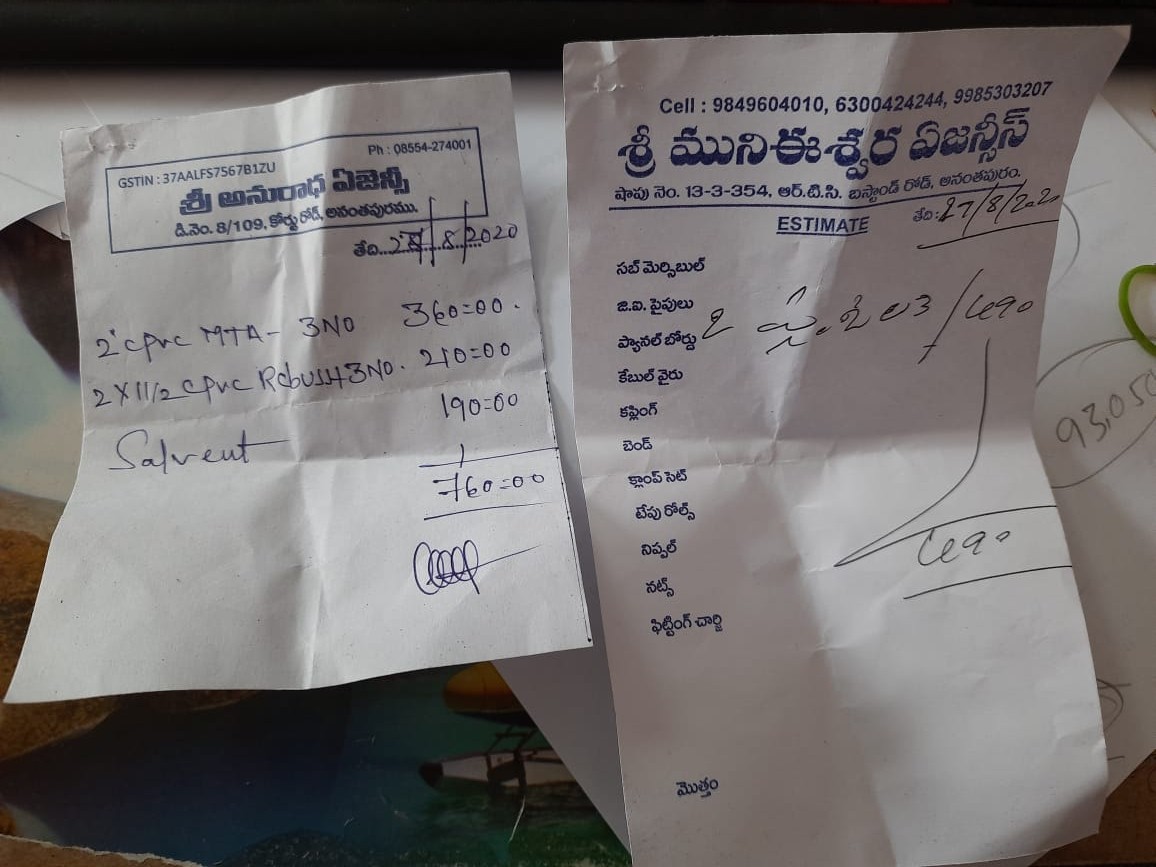 GSTIN : 37AALFS7567B1ZU
Ph : 08554-274001
శ్రీ అనురాధ ఏజెన్సీ
డి.నెం. 8/109, కోర్టు రోడ్, అనంతపురము.
తేది.. /8/2020
2" cpvc MTA - 3NO 360=00.
2 X 11/2 cpvc RebUSH 3NO. 210=00
Salvent 190=00
760=00
Cell : 9849604010, 6300424244, 9985303207
శ్రీ మునిఈశ్వర ఏజన్సీస్
షాపు నెం. 13-3-354, ఆర్.టి.సి. బస్టాండ్ రోడ్, అనంతపురం.
ESTIMATE
తేది: 27/8/2020
సబ్ మెర్సిబుల్
జి.ఐ. పైపులు
ప్యానల్ బోర్డు
కేబుల్ వైరు
కప్లింగ్
బెండ్
క్లాంప్ సెట్
టేపు రోల్స్
నిప్పల్
నట్స్
ఫిట్టింగ్ చార్జి
మొత్తం
93,050